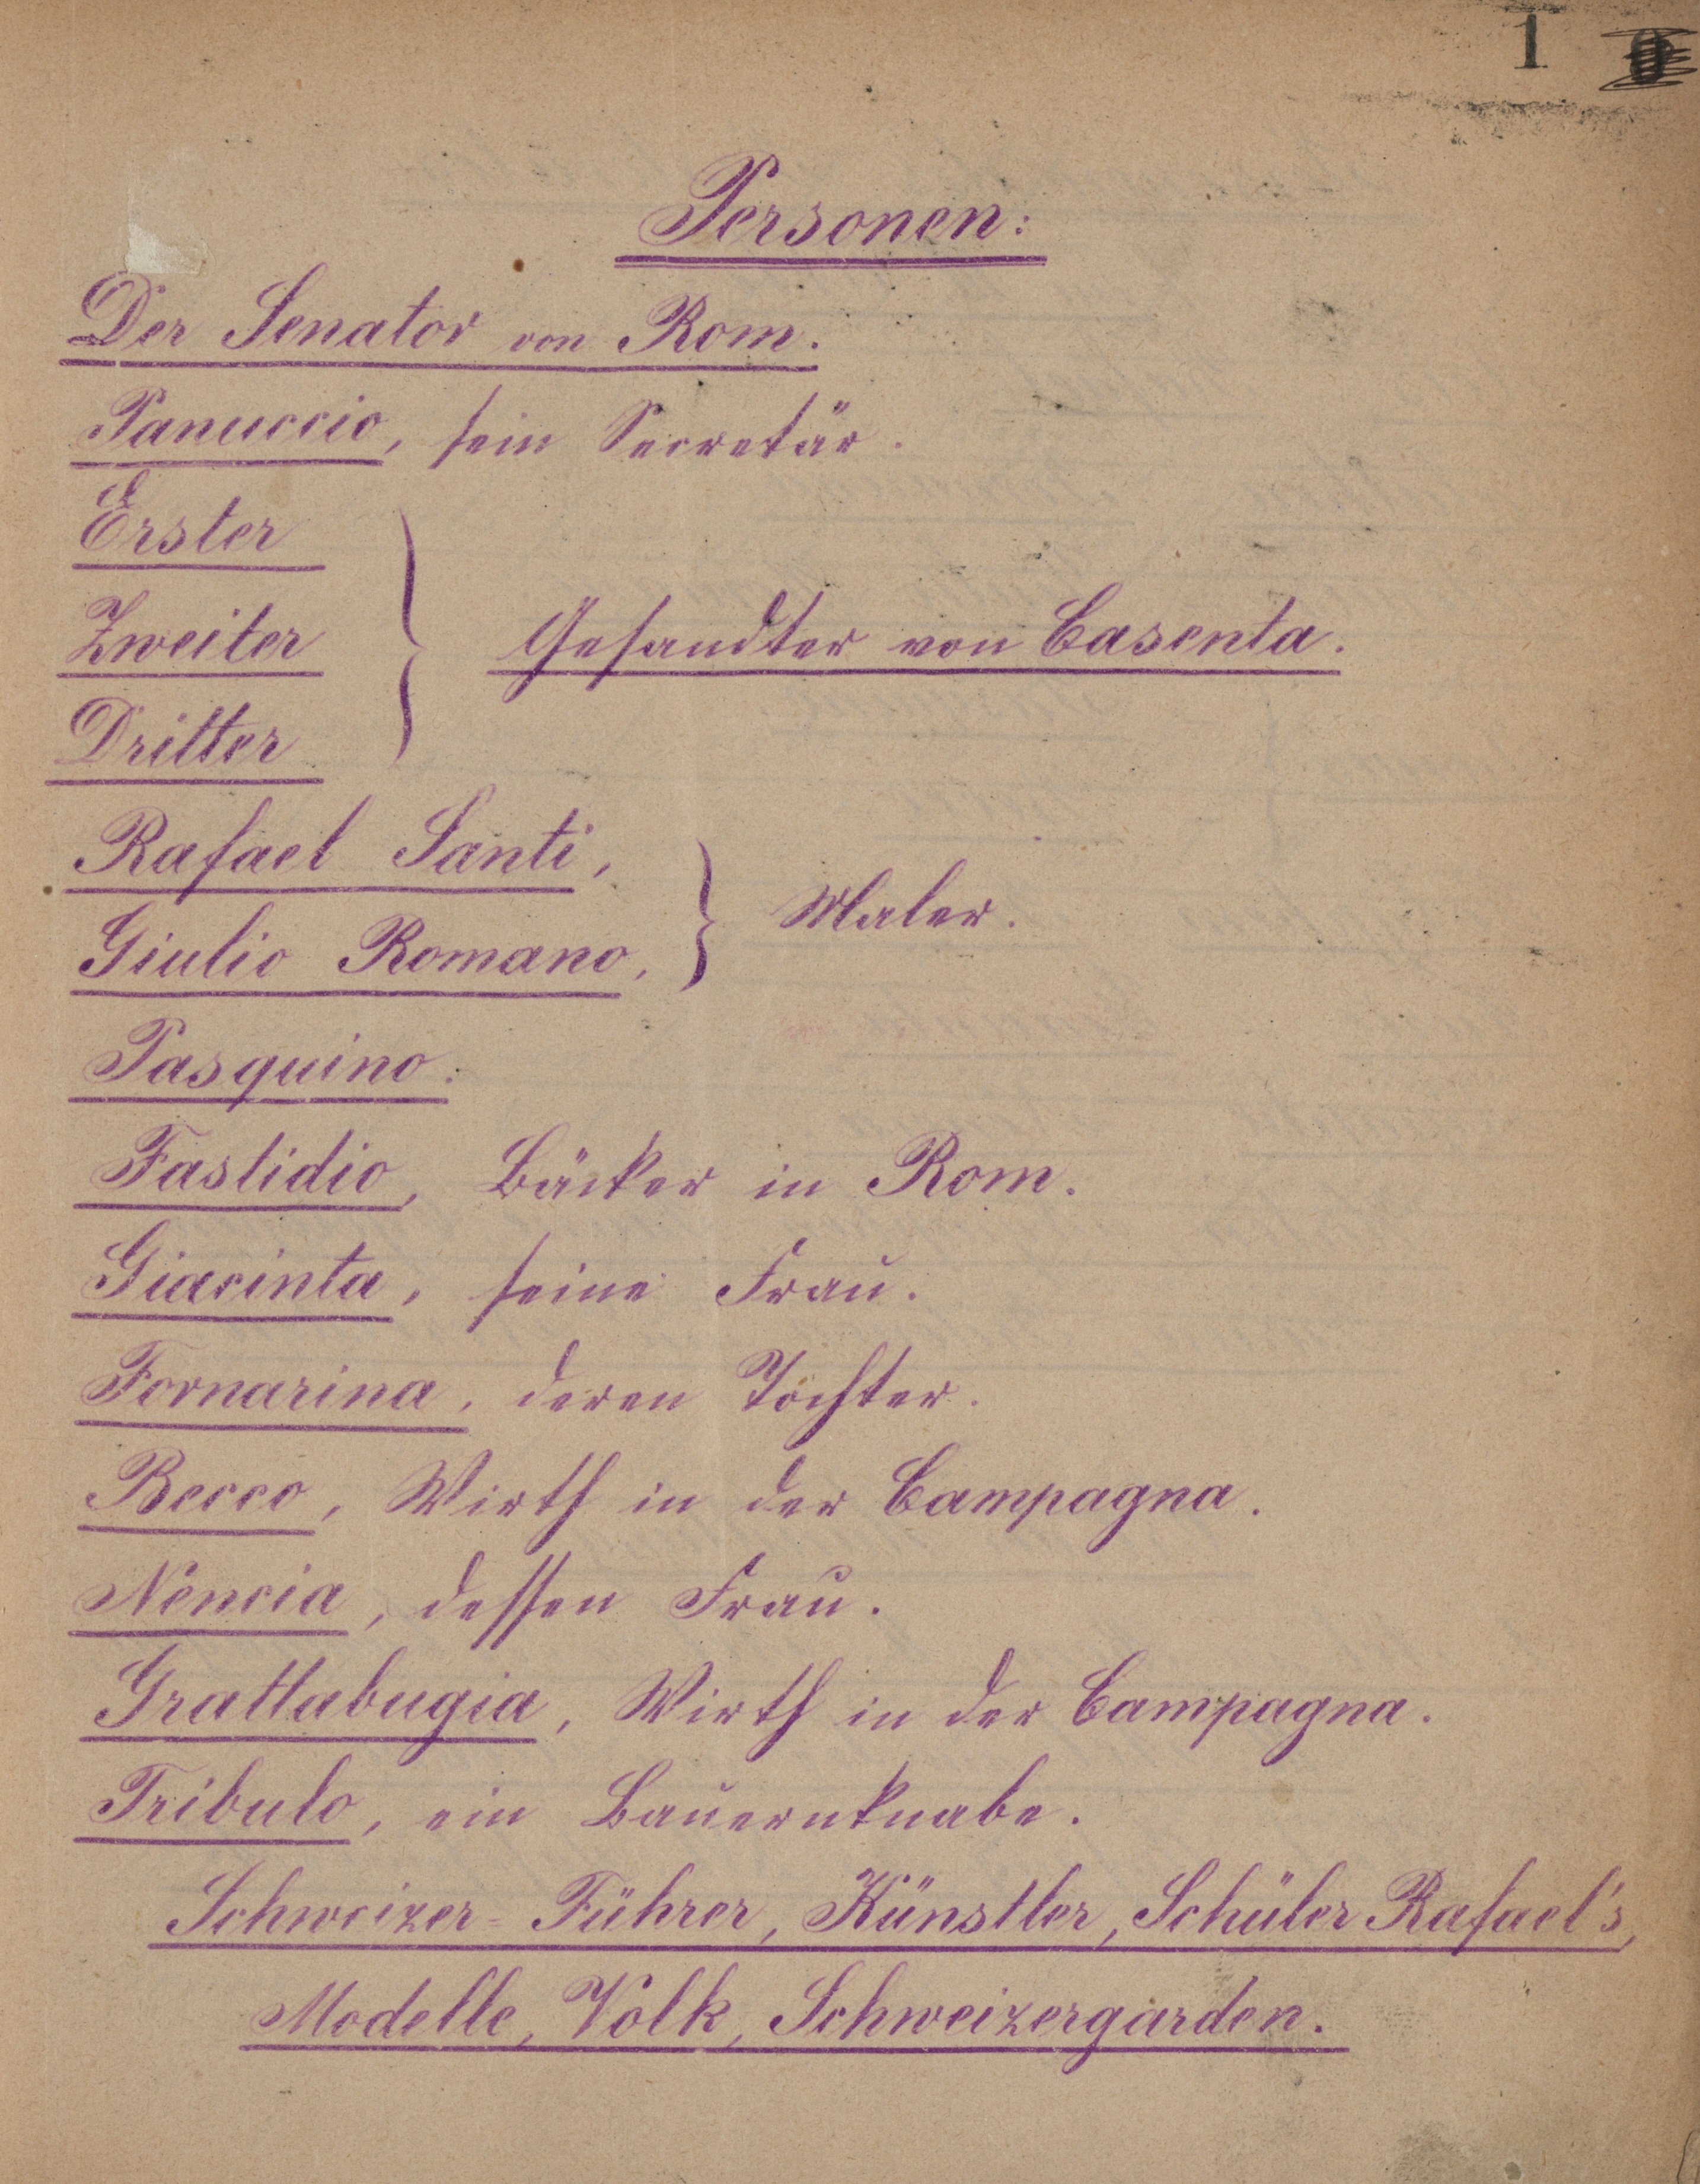 1
Personen:
Der Senator von Rom.
Panuccio, sein Secretär.
Erster
Zweiter
Gesandter von Casenta.
Dritter
Rafael Santi,
Maler.
Giulio Romano,
Pasquino.
Fastidio, Bäcker in Rom.
Giacinta, seine Frau.
Fornarina, deren Tochter.
Becco, Wirth in der Campagna.
Nencia, dessen Frau.
Grattabugia, Wirth in der Campagna.
Tribulo, ein Bauernknabe.
Schweizer-Führer, Künstler, Schüler Rafael's,
Modelle, Volk, Schweizergarden.